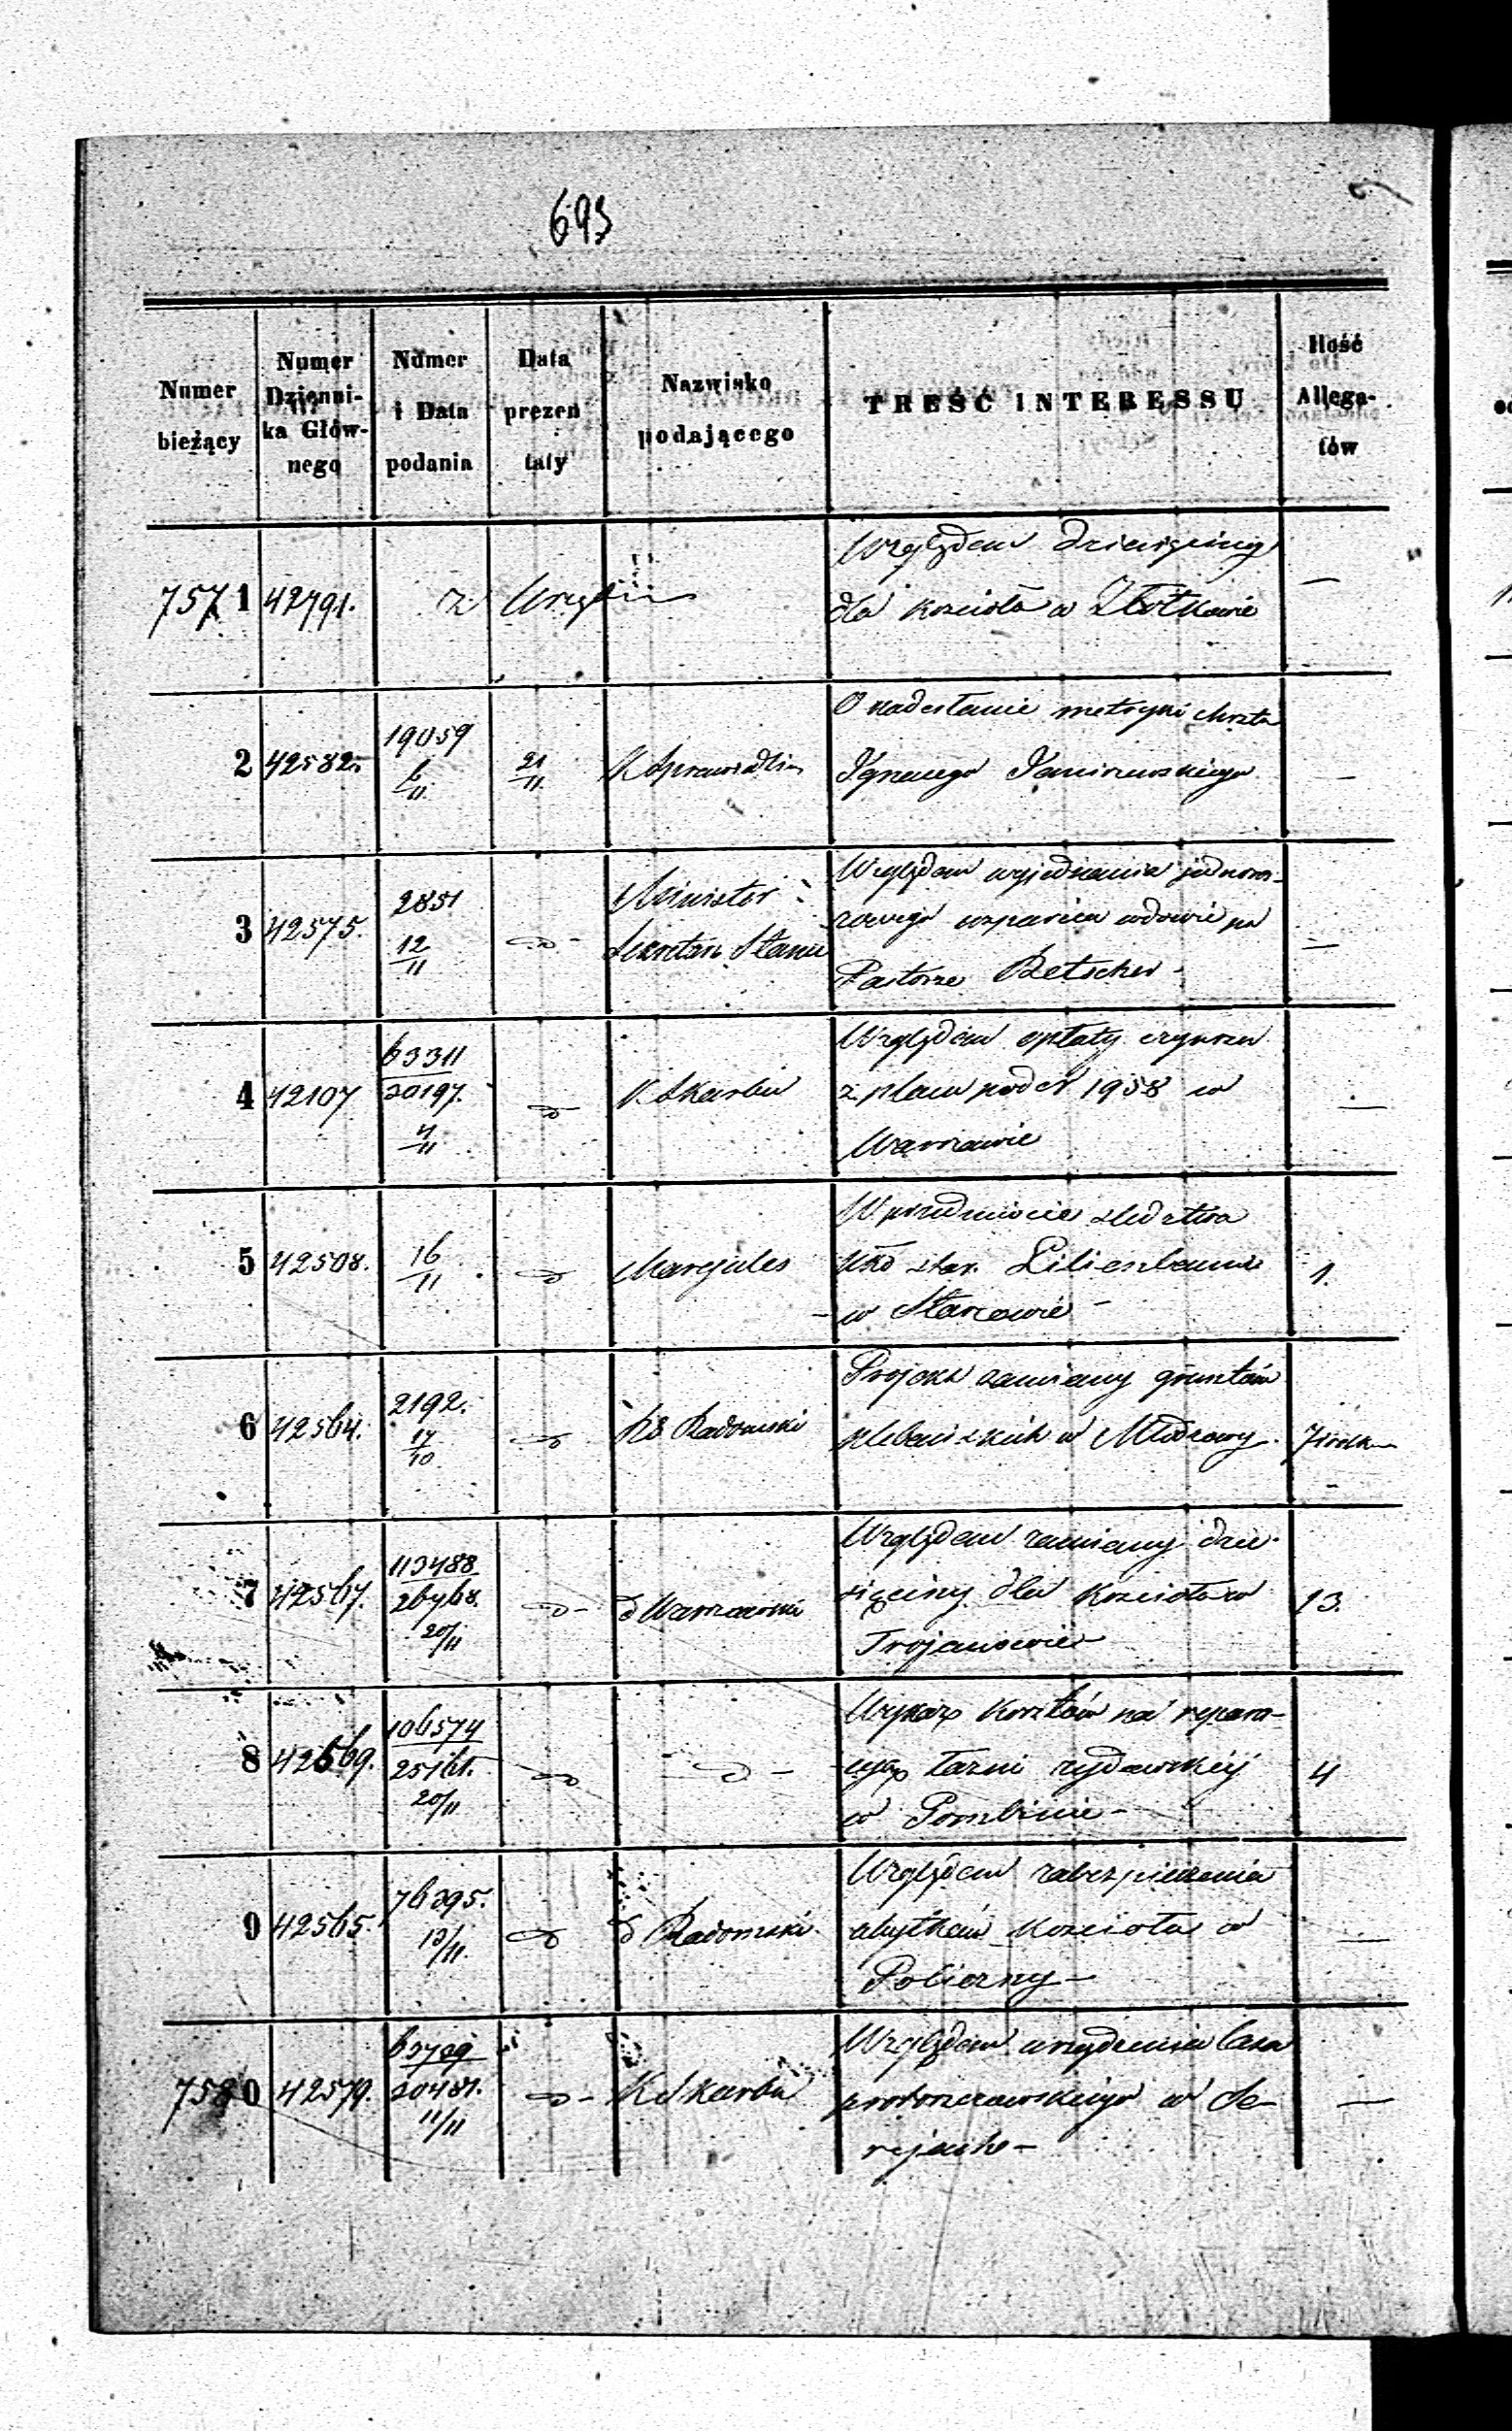 693
Numer bieżący
Numer Dzienni-ka Głów-nego
Numer i Data podania
Data prezen taty
Nazwisko podającego
TREŚĆ INTERESSU
Ilość Allega-tów
7571 42791. z Urzędu
Względem dziesięciny
dla kościoła w —
2 42582. 19059 /11 21/11 K Sprawiedli
O nadesłanie metryki chrztu
Ignacego Janiszewskiego —
3 42575. 2851 12/11 -d°- Minister
Sekretarz Stanu
Względem wyjednania jednora-
zowego wsparcia wdowie po
Pastorze Betscher - —
4 42107 63311/20197. 4/11 d° K Skarbu
Względem opłaty czynszu
z placu pod N 1958 w
Warszawie —
5 42508. 16/11 d° Margules
W przedmiocie śledztwa
star. Lilienbaum
w - 1.
6 42564. 2192. 17/10 d° Ks Radomski
Projekt zamiany gruntów
plebańskich w
7 42567. 113488/26768. 20/11 d° d Warszawski
Względem zamiany dzie-
sięciny dla kościoła w
Trojanowie - 13.
8 42569. 106574/25161. 20/11 d° d° -
Wykaz kosztów na repara-
cyą łaźni żydowskiéj
w Gombinie - 4
9 42565. 76395. 13/11. d° d Radomski
Względem zabezpieczenia
kościoła w
Policzny - —
7580 42579. 63709/20481. 11/11 d° K Skarbu
Względem urządzenia lasu
proboszczowskiego w Se-
rejach - —